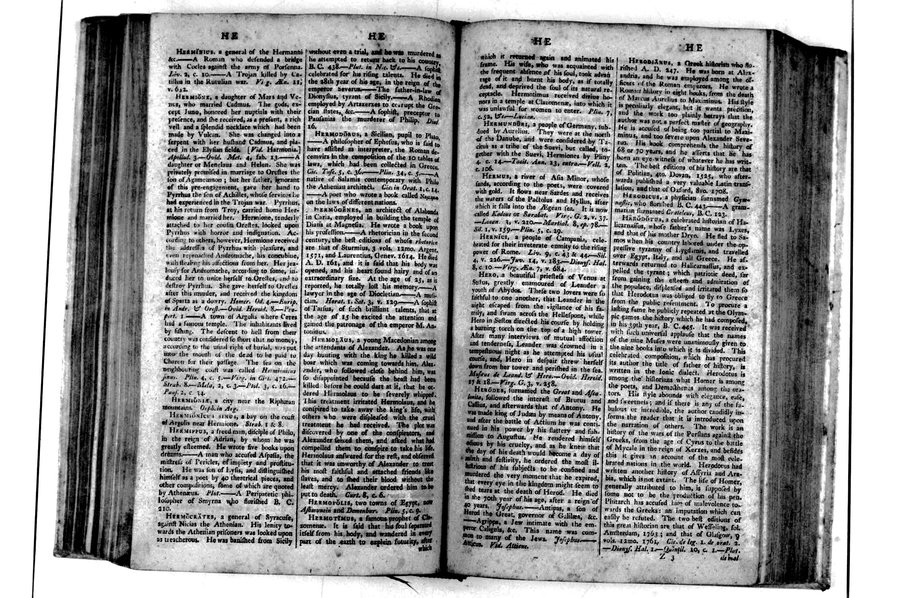 HE
HE
HERMINIUS, a general of the Hermanni
&c.——A Roman who defended a bridge
with Cocles against the army of Porsenna.
Liv. 2, c. 10.——A Trojan killed by Ca-
tillus in the Rutulian war. Virg. Æn. 11,
v. 642.
HERMIONE, a daughter of Mars and Ve-
nus, who married Cadmus. The gods, ex-
cept Juno, honored her nuptials with their
presence, and she received, as a present, a rich
veil and a splendid necklace which had been
made by Vulcan. She was changed into a
serpent with her husband Cadmus, and pla-
ced in the Elysian fields. [Vid. Harmonia.]
Apollod. 3.—Ovid. Met. 4, fab. 13.——A
daughter of Menelaus and Helen. She was
privately promised in marriage to Orestes the
son of Agamemnon; but her father, ignorant
of this pre-engagement, gave her hand to
Pyrrhus the son of Achilles, whose services he
had experienced in the Trojan war. Pyrrhus,
at his return from Troy, carried home Her-
mione and married her. Hermione, tenderly
attached to her cousin Orestes, looked upon
Pyrrhus with horror and indignation. Ac-
cording to others, however, Hermione received
the addresses of Pyrrhus with pleasure, and
even reproached Andromache, his concubine,
with stealing his affections from her. Her jea-
lousy for Andromache, according to some, in-
duced her to unite herself to Orestes, and to
destroy Pyrrhus. She gave herself to Orestes
after this murder, and received the kingdom
of Sparta as a dowry. Homer. Od. 4.—Eurip.
in Andr. & Orest.—Ovid. Heroid. 8.—Pro-
pert. 1.——A town of Argolis where Ceres
had a famous temple. The inhabitants lived
by fishing. The descent to hell from their
country was considered so short that no money,
according to the usual right of burial, was put
into the mouth of the dead to be paid to
Charon for their passage. The sea on the
neighbouring coast was called Hermionicus
sinus. Plin. 4, c. 5.—Virg. in Ciri. 472.—
Strab. 8.—Mela, 2, c. 3.—Ptol. 3, c. 16.—
Paus. 2, c. 34.
HERMIONIÆ, a city near the Riphæan
mountains. Orph. in Arg.
HERMIONICUS SINUS, a bay on the coast
of Argolis near Hermione. Strab. 1 & 8.
HERMIPPUS, a freedman, disciple of Philo,
in the reign of Adrian, by whom he was
greatly esteemed. He wrote five books upon
dreams.——A man who accused Aspasia, the
mistress of Pericles, of impiety and prostitu-
tion. He was son of Lysis, and distinguished
himself as a poet by 40 theatrical pieces, and
other compositions, some of which are quoted
by Athenæus. Plut.——A Peripatetic phi-
losopher of Smyrna who florished B. C.
210.
HERMOCRATES, a general of Syracuse,
against Nicias the Athenian. His lenity to-
wards the Athenian prisoners was looked upon
as treacherous. He was banished from Sicily
without even a trial, and he was murdered as
he attempted to return back to his country,
B. C. 408.—Plut. in Nic. &c.——A sophist
celebrated for his rising talents. He died in
the 28th year of his age, in the reign of the
emperor Severus.——The father-in-law of
Dionysius, tyrant of Sicily.——A Rhodian
employed by Artaxerxes to corrupt the Gre-
cian states, &c.——A sophist, preceptor to
Pausanias the murderer of Philip. Diod.
16.
HERMODORUS, a Sicilian, pupil to Plato.
——A philosopher of Ephesus, who is said to
have assisted as interpreter, the Roman de-
cemvirs in the composition of the 10 tables of
laws, which had been collected in Greece.
Cic. Tusc. 5, c. 36.—Plin. 34, c. 5.——A
native of Salamis contemporary with Philo
the Athenian architect. Cic. in Orat. 1, c. 14.
——A poet who wrote a book called Νομιμα
on the laws of different nations.
HERMOGENES, an architect of Alabanda
in Caria, employed in building the temple of
Diana at Magnesia. He wrote a book upon
his profession.——A rhetorician in the second
century, the best editions of whose rhetorica
are that of Sturmius, 3 vols. 12mo. Argent.
1571, and Laurentius, Genev. 1614. He died
A. D. 161, and it is said that his body was
opened, and his heart found hairy and of an
extraordinary size. At the age of 25, as is
reported, he totally lost his memory.——A
lawyer in the age of Dioclesian.——A mu-
sician. Horat. 1, Sat. 3, v. 129.——A sophist
of Tarsus, of such brilliant talents, that at
the age of 15 he excited the attention and
gained the patronage of the emperor M. An-
toninus.
HERMOLAUS, a young Macedonian among
the attendants of Alexander. As he was one
day hunting with the king he killed a wild
boar which was coming towards him. Alex-
ander, who followed close behind him, was
so disappointed because the beast had been
killed before he could dart at it, that he or-
dered Hermolaus to be severely whipped.
This treatment irritated Hermolaus, and he
conspired to take away the king's life, with
others who were displeased with the cruel
treatment he had received. The plot was
discovered by one of the conspirators, and
Alexander seized them, and asked what had
compelled them to conspire to take his life.
Hermolaus answered for the rest, and observed
that it was unworthy of Alexander to treat
his most faithful and attached friends like
slaves, and to shed their blood without the
least mercy. Alexander ordered him to be
put to death. Curt. 8, c. 6.
HERMOPOLIS, two towns of Egypt, now
Ashmunein and Demenhur. Plin. 5, c. 9.
HERMOTIMUS, a famous prophet of Cla-
zomenæ. It is said that his soul separated
itself from his body, and wandered in every
part of the earth to explain futurity, after
which
HE
HE
which it returned again and animated his
frame. His wife, who was acquainted with
the frequent absence of his soul, took advan-
tage of it and burnt his body, as if totally
dead, and deprived the soul of its natural re-
ceptacle. Hermotimus received divine ho-
nors in a temple at Clazomenæ, into which it
was unlawful for women to enter. Plin. 7,
c. 52, &c.—Lucian.
HERMUNDURI, a people of Germany, sub-
dued by Aurelius. They were at the north
of the Danube, and were considered by Ta-
citus as a tribe of the Suevi, but called, to-
gether with the Suevi, Hermiones by Pliny
4, c. 14.—Tacit. Ann. 13, extra.—Vell. 2,
c. 106.
HERMUS, a river of Asia Minor, whose
sands, according to the poets, were covered
with gold. It flows near Sardes and receives
the waters of the Pactolus and Hyllus, after
which it falls into the Ægean sea. It is now
called Kedous or Sarabat. Virg. G. 2, v. 37.
—Lucan. 3, v. 210.—Martial. 8, ep. 78.—
Sil. 1, v. 159.—Plin. 5, c. 29.
HERNICI, a people of Campania, cele-
brated for their inveterate enmity to the rising
power of Rome. Liv. 9, c. 43 & 44.—Sil.
4, v. 226.—Juv. 14, v. 283.—Dionys. Hal.
8, c. 10.—Virg. Æn. 7, v. 684.
HERO, a beautiful priestess of Venus at
Sestus, greatly enamoured of Leander a
youth of Abydos. These two lovers were so
faithful to one another, that Leander in the
night escaped from the vigilance of his fa-
mily, and swam across the Hellespont, while
Hero in Sestus directed his course by holding
a burning torch on the top of a high tower.
After many interviews of mutual affection
and tenderness, Leander was drowned in a
tempestuous night as he attempted his usual
course, and Hero in despair threw herself
down from her tower and perished in the sea.
Musæus de Leand. & Hero.—Ovid. Heroid.
17 & 18.—Virg. G. 3, v. 258.
HERODES, surnamed the Great and Asca-
lonita, followed the interest of Brutus and
Cassius, and afterwards that of Antony. He
was made king of Judæa by means of Antony,
and after the battle of Actium he was conti-
nued in his power by his flattery and sub-
mission to Augustus. He rendered himself
odious by his cruelty, and as he knew that
the day of his death would become a day of
mirth and festivity, he ordered the most il-
lustrious of his subjects to be confined and
murdered the very moment that he expired,
that every eye in the kingdom might seem to
shed tears at the death of Herod. He died
in the 70th year of his age, after a reign of
40 years. Josephus.——Antipas, a son of
Herod the Great, governor of Galilee, &c.
——Agrippa, a Jew intimate with the em-
peror Caligula, &c. This name was com-
mon to many of the Jews. Josephus.——
Atticus. Vid. Atticus.
HERODIANUS, a Greek historian who flo-
rished A. D. 247. He was born at Alex-
andria, and he was employed among the of-
ficers of the Roman emperors. He wrote a
Roman history in eight books, from the death
of Marcus Aurelius to Maximinus. His style
is peculiarly elegant, but it wants precision,
and the work too plainly betrays that the
author was not a perfect master of geography.
He is accused of being too partial to Maxi-
minus, and too severe upon Alexander Seve-
rus. His book comprehends the history of
68 or 70 years, and he asserts that he has
been an eye witness of whatever he has writ-
ten. The best editions of his history are that
of Politian, 4to. Dovan. 1525, who after-
wards published a very valuable Latin trans-
lation, and that of Oxford, 8vo. 1708.
HERODICUS, a physician surnamed Gym-
nastic, who florished B. C. 443.——A gram-
marian surnamed Crateleus, B. C. 123.
HERODOTUS, a celebrated historian of Ha-
licarnassus, whose father's name was Lyxes,
and that of his mother Dryo. He fled to Sa-
mos when his country labored under the op-
pressive tyranny of Lygdamis, and travelled
over Egypt, Italy, and all Greece. He af-
terwards returned to Halicarnassus, and ex-
pelled the tyrant; which patriotic deed, far
from gaining the esteem and admiration of
the populace, displeased and irritated them so
that Herodotus was obliged to fly to Greece
from the public resentment. To procure a
lasting fame he publicly repeated at the Olym-
pic games the history which he had composed,
in his 39th year, B. C. 445. It was received
with such universal applause that the names
of the nine Muses were unanimously given to
the nine books into which it is divided. This
celebrated composition, which has procured
its author the title of father of history, is
written in the Ionic dialect. Herodotus is
among the historians what Homer is among
the poets, and Demosthenes among the ora-
tors. His style abounds with elegance, ease,
and sweetness; and if there is any of the fa-
bulous or incredible, the author candidly in-
forms the reader that it is introduced upon
the narration of others. The work is an
history of the wars of the Persians against the
Greeks, from the age of Cyrus to the battle
of Mycale in the reign of Xerxes, and besides
this it gives an account of the most cele-
brated nations in the world. Herodotus had
written another history of Assyria and Ara-
bia, which is not extant. The life of Homer,
generally attributed to him, is supposed by
some not to be the production of his pen.
Plutarch has accused him of malevolence to-
wards the Greeks; an imputation which can
easily be refuted. The two best editions of
this great historian are that of Wesseling, fol.
Amsterdam, 1763; and that of Glasgow, 9
vols. 12mo. 1761. Cic. de leg. 1. de orat. 2.
—Dionys. Hal. 1.—Quintil. 10, c. 1.—Plut.
Z 3
de mal